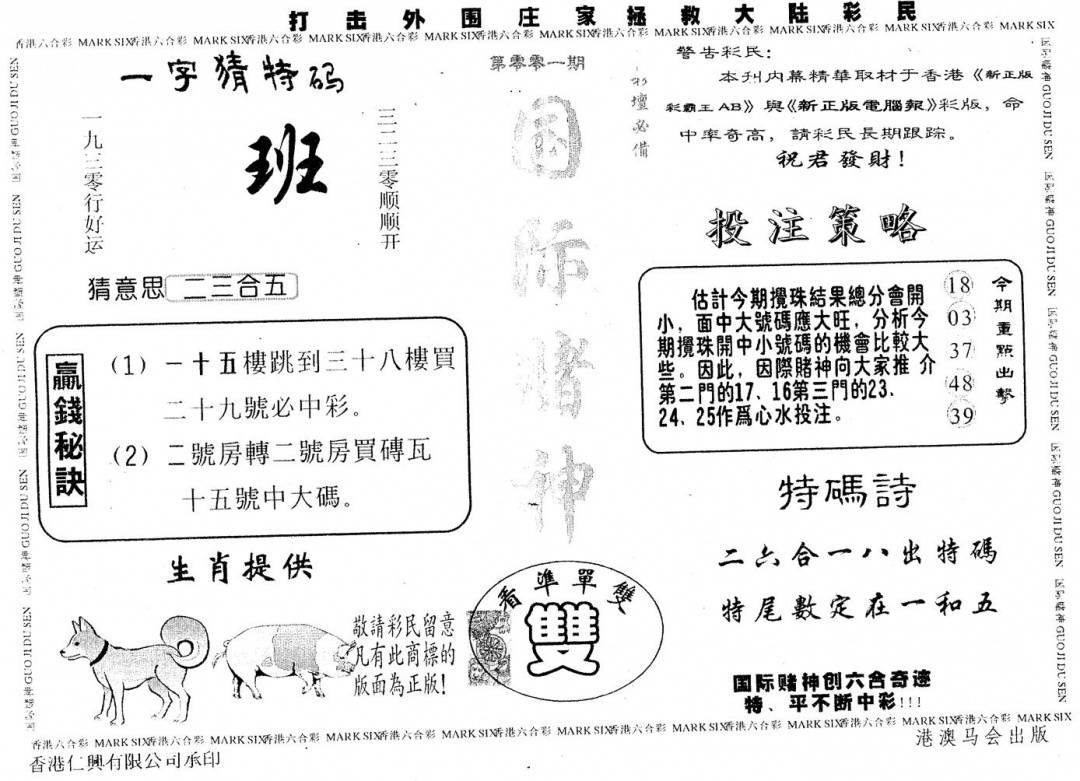 打击外围庄家拯救大陆彩民
香港六合彩 MARK SIX香港六合彩 MARK SIX香港六合彩 MARK SIX香港六合彩 MARK SIX香港六合彩 MARK SIX香港六合彩 MARK SIX香港六合彩 MARK SIX香港六合彩 MARK SIX香港六合彩 MARK SIX
一字猜特码
一九三零行好运
班
三一二三零顺顺开
猜意思 二三合五
贏錢秘訣
(1) 一十五樓跳到三十八樓買
二十九號必中彩。
(2) 二號房轉二號房買磚瓦
十五號中大碼。
生肖提供
敬請彩民留意
凡有此商標的
版面為正版!
第零零一期
国际赌神
彩壇必備
看準單雙
雙
警告彩民:
本刊内幕精華取材于香港《新正版
彩霸王 AB》與《新正版電腦報》彩版，命
中率奇高，請彩民長期跟踪。
祝君發財!
投注策略
估計今期攪珠結果總分會開
小，面中大號碼應大旺，分析今
期攪珠開中小號碼的機會比較大
些。因此，因際賭神向大家推 介
第二門的17、16第三門的23、
24、25作爲心水投注。
18
03
37
48
39
今期重點出擊
特碼詩
二六合一八出特碼
特尾數定在一和五
国际赌神创六合奇迹
特、平不断中彩!!!
国际赌神 GUO JI DU SEN 国际赌神 GUO JI DU SEN 国际赌神 GUO JI DU SEN 国际赌神 GUO JI DU SEN 国际赌神 GUO JI DU SEN
香港六合彩 MARK SIX香港六合彩 MARK SIX香港六合彩 MARK SIX香港六合彩 MARK SIX香港六合彩 MARK SIX香港六合彩 MARK SIX香港六合彩 MARK SIX香港六合彩 MARK SIX香港六合彩 MARK SIX
香港仁興有限公司承印
港澳马会出版